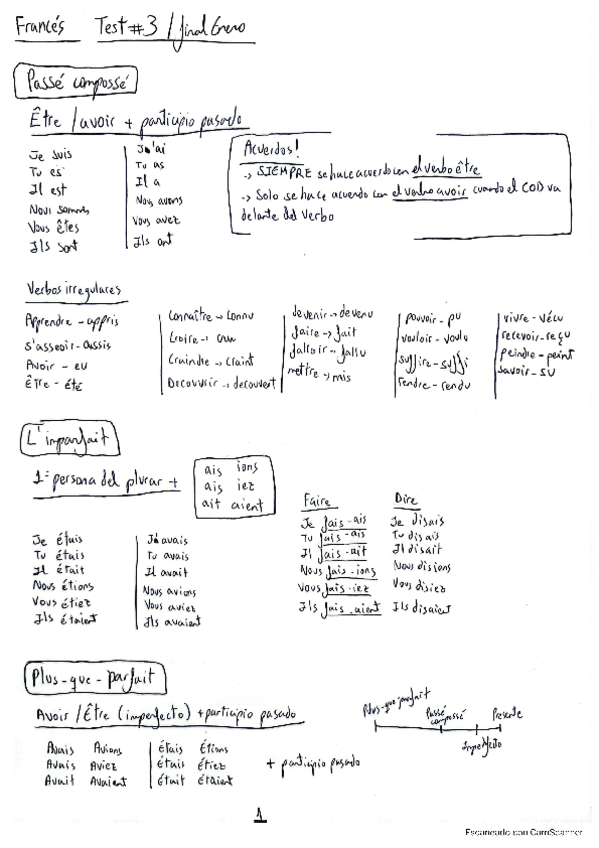 Francés Test #3 / final Enero
Passé compossé
Être / avoir + participio pasado
Je suis
Tu es
Il est
Nous sommes
Vous êtes
Ils sont
J'ai
Tu as
Il a
Nous avons
Vous avez
Ils ont
Acuerdos!
-> SIEMPRE se hace acuerdo con el verbo être
-> Solo se hace acuerdo con el verbo avoir cuando el COD va
delante del verbo
Verbos irregulares
Apprendre - appris
s'asseoir - assis
Avoir - eu
Être - été
Connaître -> connu
Croire -> cru
Craindre -> craint
Decouvrir -> decouvert
devenir -> devenu
faire -> fait
falloir - fallu
mettre -> mis
pouvoir - pu
vouloir - voulu
suffire - suffi
rendre - rendu
vivre - vécu
recevoir - reçu
peindre - peint
savoir - su
L'imparfait
1ª persona del plurar +
ais ions
ais iez
ait aient
Je étais
Tu étais
Il était
Nous étions
Vous étiez
Ils étaient
J'avais
Tu avais
Il avait
Nous avions
Vous aviez
Ils avaient
Faire
Je fais-ais
Tu fais-ais
Il fais-ait
Nous fais-ions
Vous fais-iez
Ils fais-aient
Dire
Je disais
Tu disais
Il disait
Nous disions
Vous disiez
Ils disaient
Plus-que-parfait
Avoir / Être (imperfecto) + participio pasado
Avais Avions
Avais Aviez
Avait Avaient
étais étions
étais étiez
était étaient
+ participio pasado
Plus-que parfait
Passé
compossé
Imperfecto
Presente
1
Escaneado con CamScanner